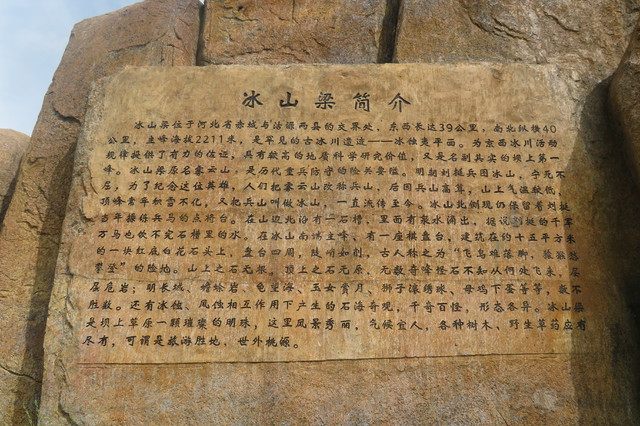 冰山梁简介
冰山梁位于河北省赤城与沽源两县的交界处，东西长达39公里，南北纵横40
公里，主峰海拔2211米，是罕见的古冰川遗迹——冰蚀夷平面。为京西冰川活动
规律提供了有力的佐证，具有较高的地质科学研究价值，又是名副其实的坝上第一
峰。冰山梁原名云山，是历代重兵防守的险关要隘。明朝刘挺兵困冰山，宁死不
屈，为了纪念这位英雄，人们把云山改称兵山，后因兵山高耸，山上气温较低，
顶峰常年积雪不化，又把兵山叫做冰山，一直流传至今。冰山北侧现仍保留着刘挺
当年操练兵马的点将台。在山边北沿有一石槽，里面有泉水涌出，据说刘挺的千军
万马也饮不完石槽里的水。在冰山南端主峰，有一座棋盘台，建筑在约十五平方米
的一块红底白花石头上，盘台四周，陡峭如削，古人称之为“飞鸟难落脚，猿猴愁
攀登”的险地。山上之石无根，顶上之石无数，奇峰怪石不知从何处飞来，
层危岩；明长城、蟾蜍岩、龟望海、玉女赏月、狮子滚绣球、母鸡下蛋等等，数不
胜数。还有冰蚀、风蚀相互作用下产生的石海奇观，千奇百怪，形态各异。冰山
是坝上草原一颗璀璨的明珠，这里风景秀丽，气候宜人，各种树木、野生草药应有
尽有，可谓是旅游胜地，世外桃源。